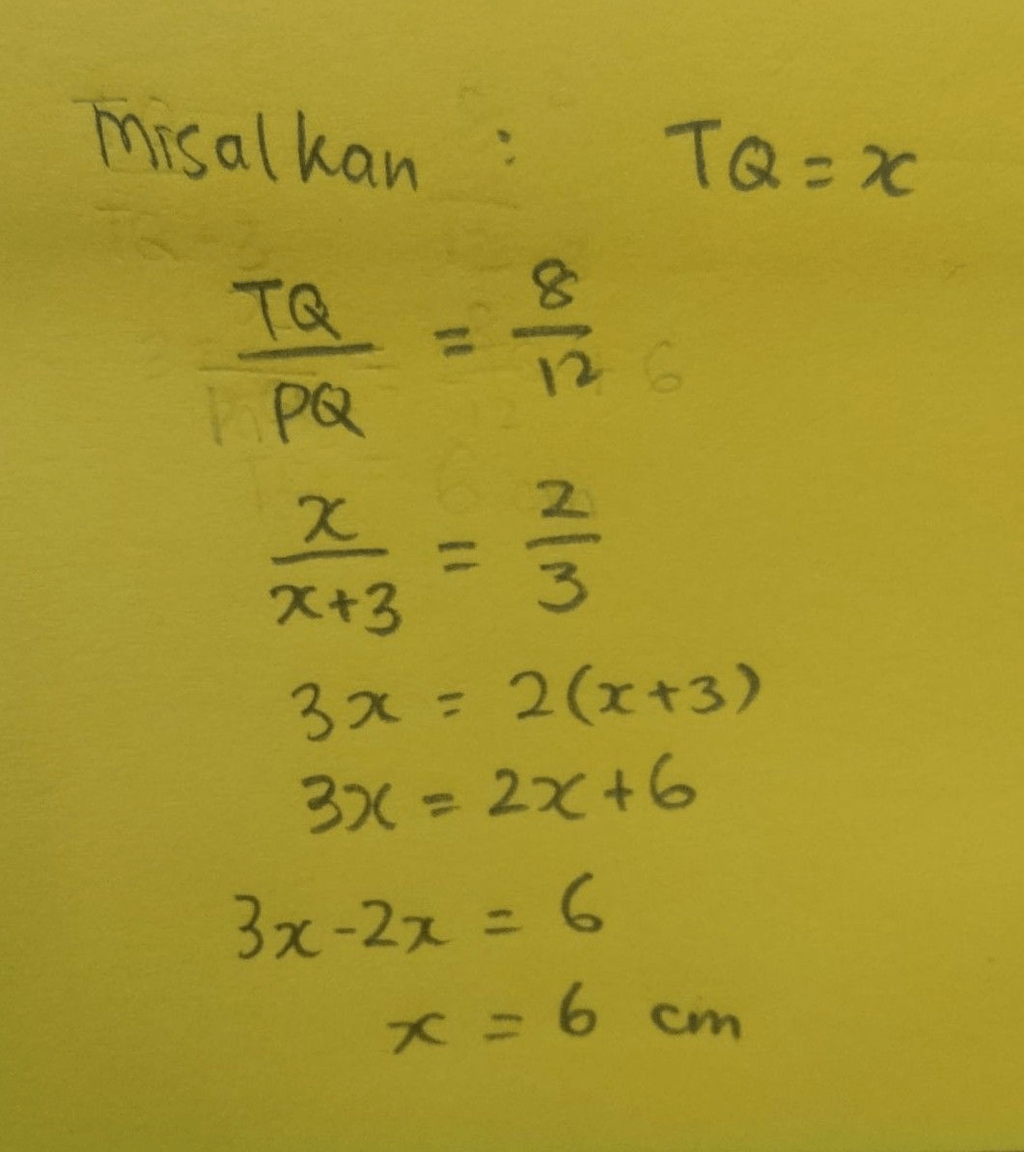 Misalkan : TQ = x
TQ/PQ = 8/12
x/x+3 = 2/3
3x = 2(x+3)
3x = 2x+6
3x-2x = 6
x = 6 cm